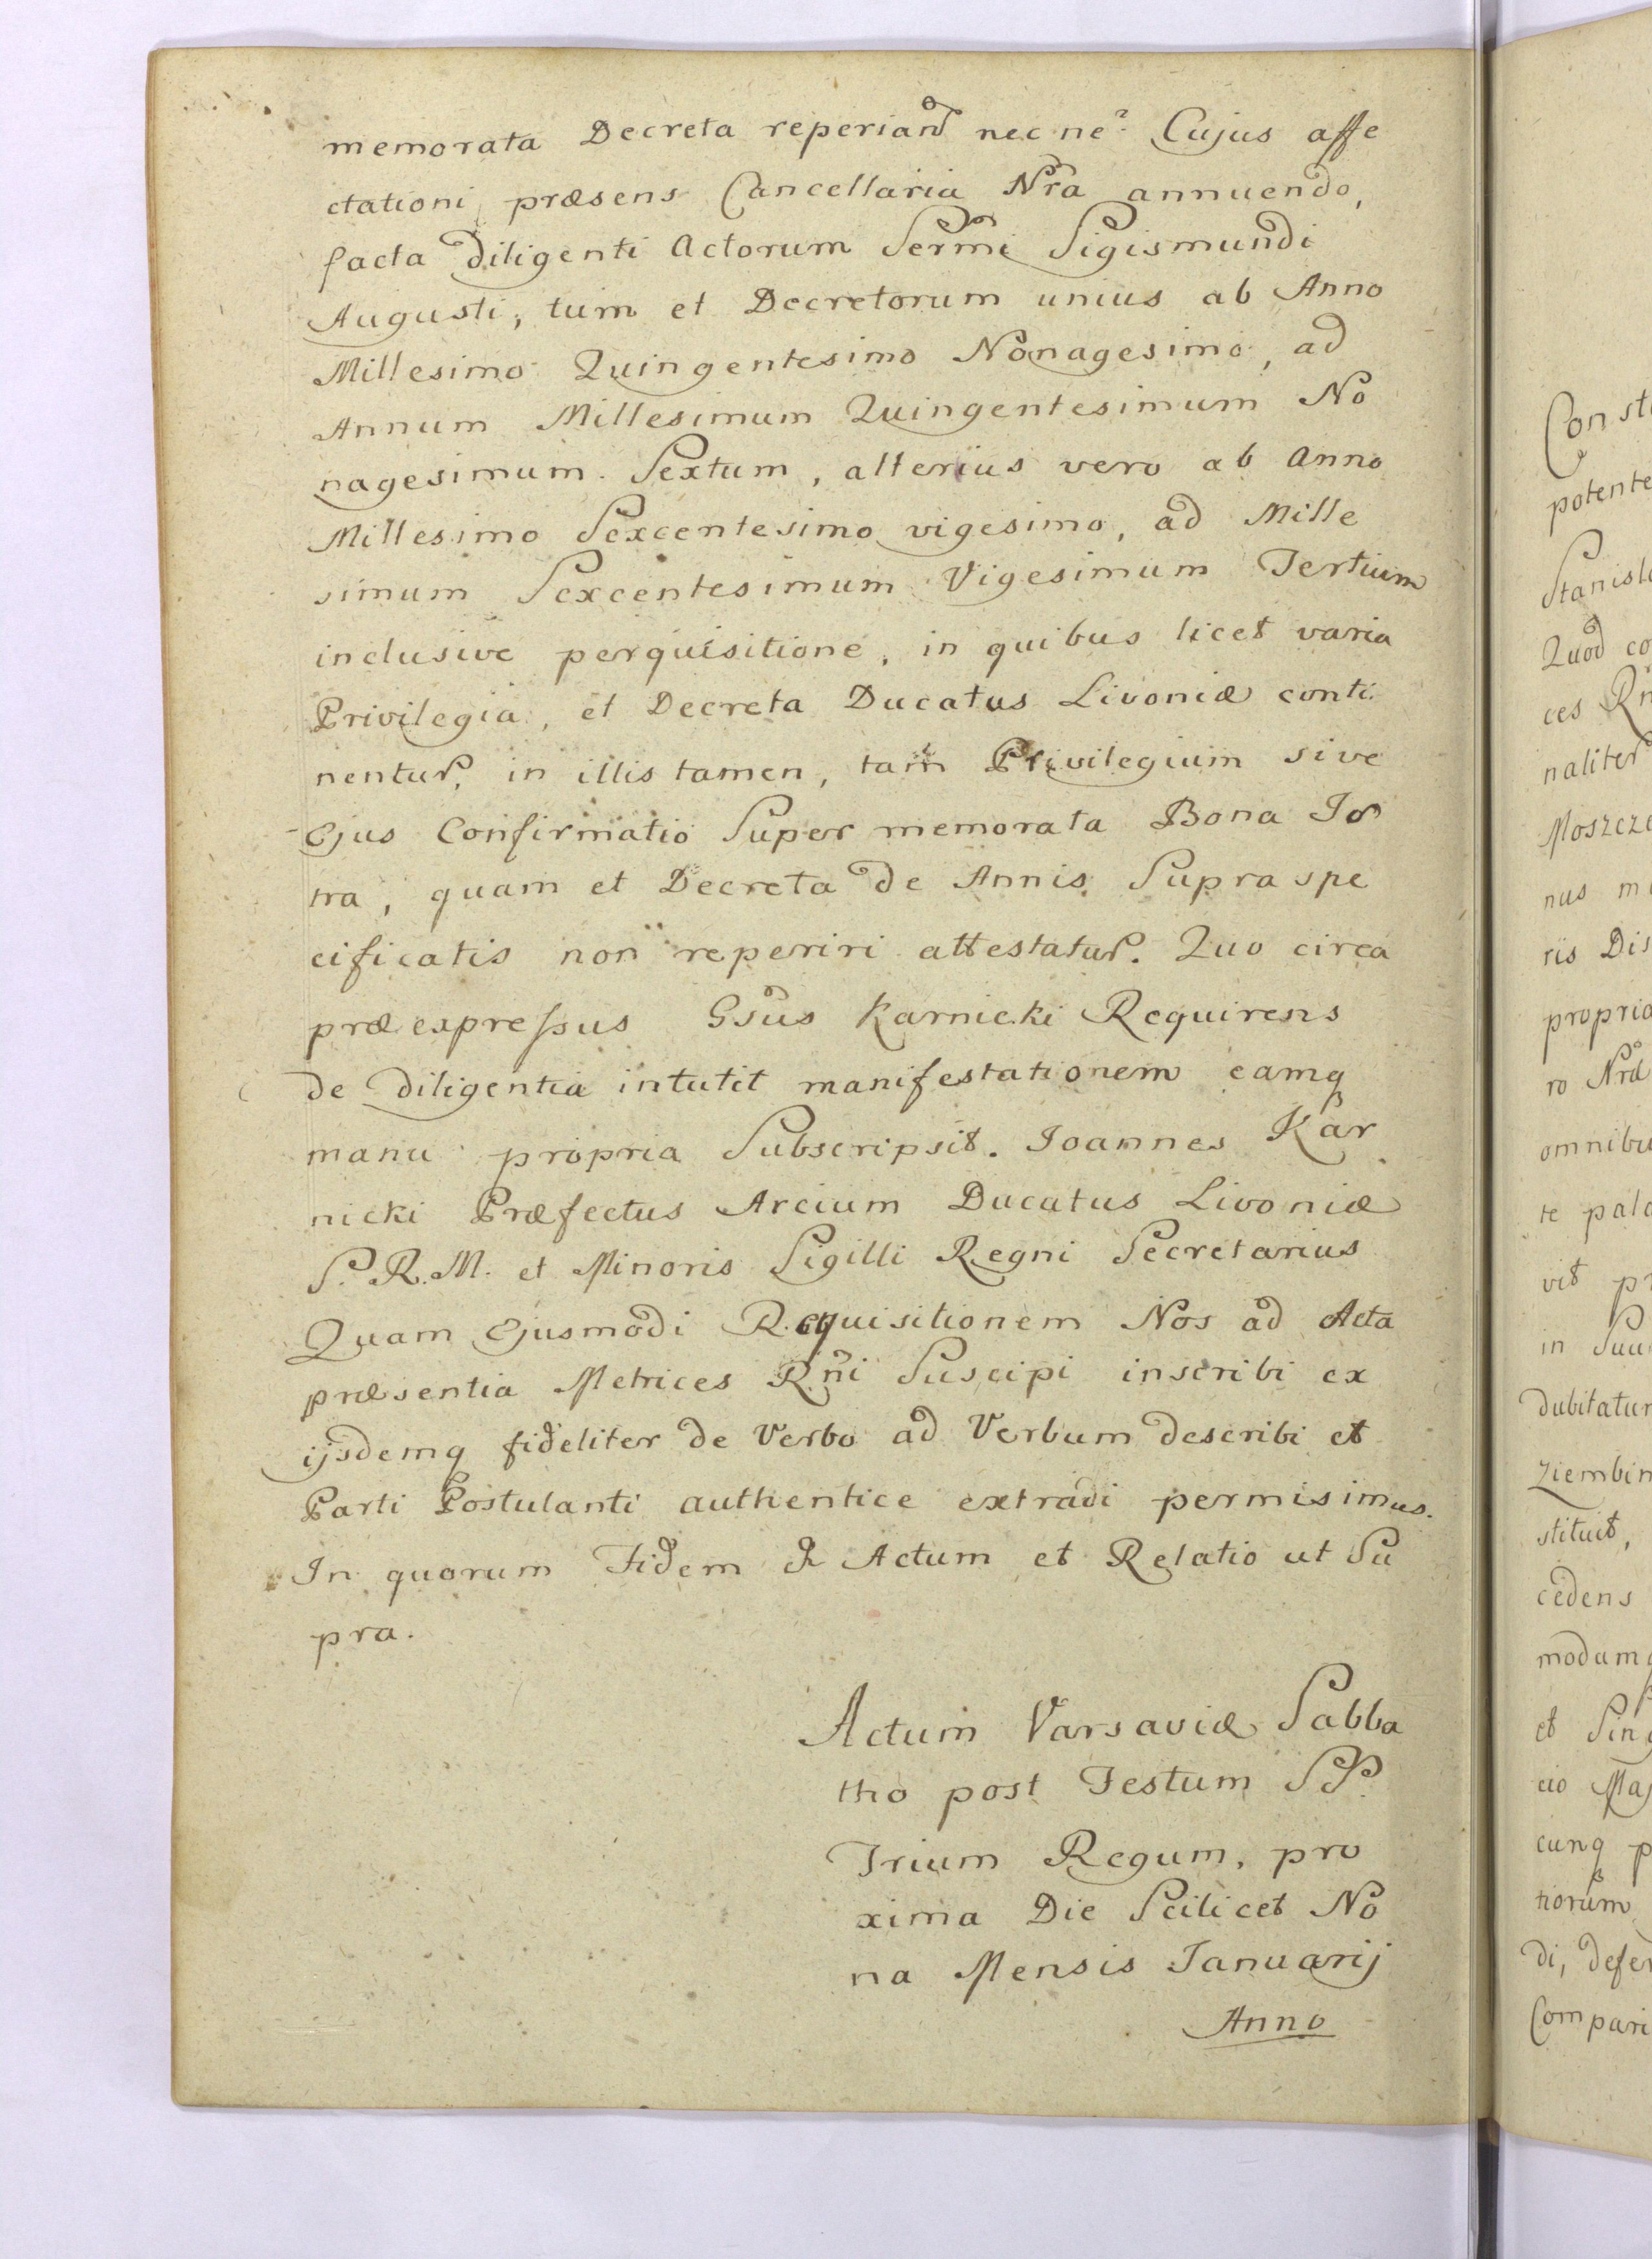 memorata Decreta reperiant̃ nec ne? Cujus affe
ctationi præsens Cancellaria Nr̃a annuendo,
facta diligenti Actorum Serm̃i Sigismundi
Augusti, tum et Decretorum unius ab Anno
Millesimo Quingentesimo Nonagesimo, ad
Annum Millesimum Quingentesimum No
nagesimum Sextum, alterius vero ab Anno
Millesimo Sexcentesimo vigesimo, ad Mille
simum Sexcentesimum Vigesimum Tertium
inclusive perquisitione, in quibus licet varia
Privilegia, et Decreta Ducatus Livoniæ conti
nentur, in illis tamen, tam Privilegium sive
Ejus Confirmatio Super memorata Bona Jo
tra, quam et Decreta de Annis Supra spe
cificatis non reperiri attestatur. Quo circa
præexpressus Gsũs Karnicki Requirens
de diligentia intulit manifestationem eamq
manu propria Subscripsit. Joannes Kar
nicki Præfectus Arcium Ducatus Livoniæ
S. R. M. et Minoris Sigilli Regni Secretarius
Quam Ejusmodi Requisitionem Nos ad Acta
præsentia Metrices Rñi Suscipi inscribi ex
ijsdemq fideliter de Verbo ad Verbum describi et
Parti Postulanti authentice extradi permisimus.
In quorum Fidem & Actum et Relatio ut Su
pra.
Actum Varsaviæ Sabba
tho post Festum SS.
Trium Regum, pro
xima Die Scilicet No
na Mensis Januarij
Anno
Const
potente
Stanisla
Quod co
ces Rñ
naliter
Moszcze
nus m
ris Dis
propria
ro Nræ
omnibu
te pala
vit pr
in Suu
dubitatur
ziembin
stituit,
cedens
modumq
et Sing
cio Maj
cunq p
tiorum
di, defer
Compari